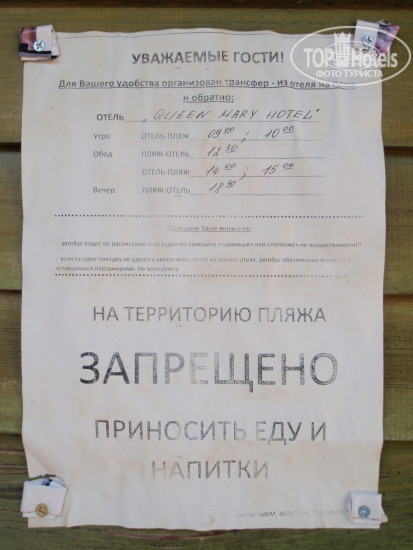 TOP Hotels
ФОТО ТУРИСТА
УВАЖАЕМЫЕ ГОСТИ!
Для Вашего удобства организован трансфер - из отеля на пляж
и обратно:
ОТЕЛЬ „QUEEN MARY HOTEL"
Утро ОТЕЛЬ-ПЛЯЖ 09 00 ; 10 00
Обед ПЛЯЖ-ОТЕЛЬ 12 30
ОТЕЛЬ-ПЛЯЖ 14 00 ; 15 00
Вечер ПЛЯЖ-ОТЕЛЬ 18 30
Ваше внимание:
- автобус ездит по расписанию
- если за одну поездку не удалось увезти всех гостей из одного отеля, автобус обязательно
оставшимися пассажирами. Не волнуйтесь
НА ТЕРРИТОРИЮ ПЛЯЖА
ЗАПРЕЩЕНО
ПРИНОСИТЬ ЕДУ И
НАПИТКИ